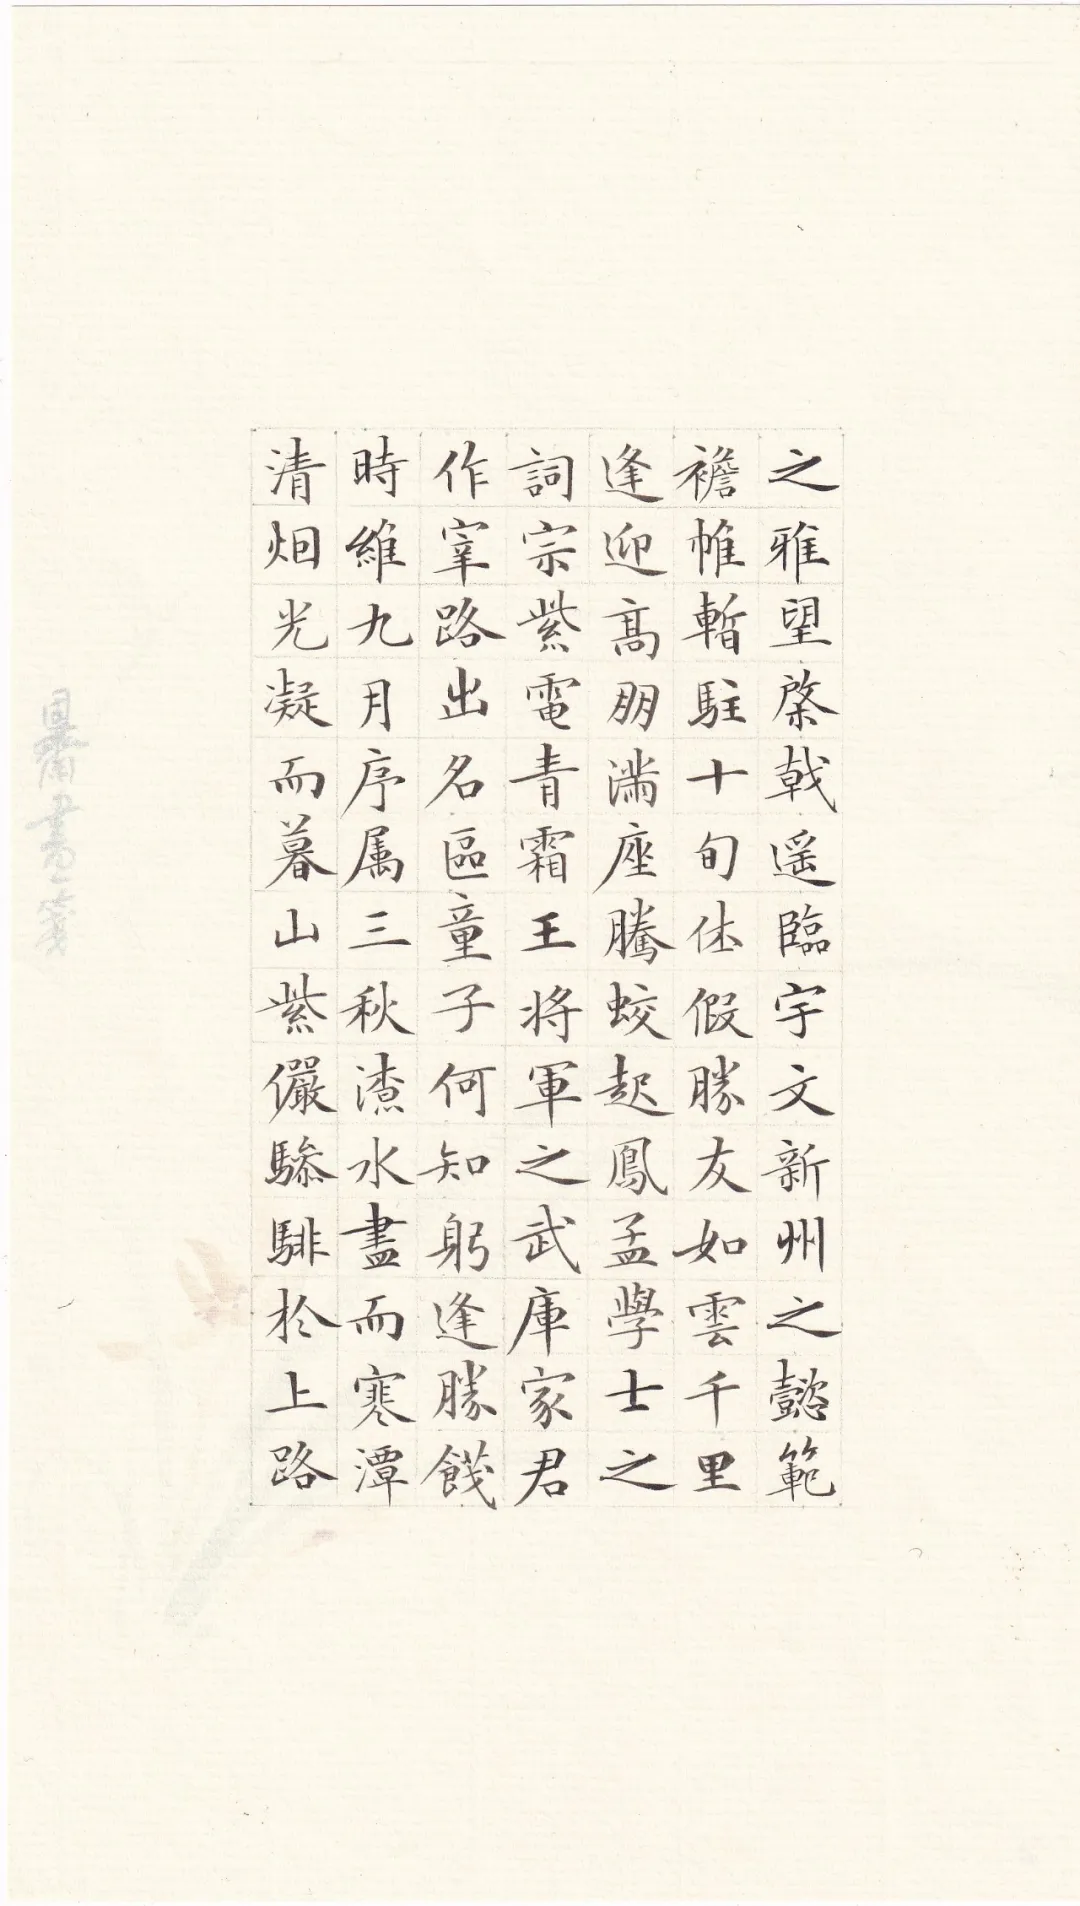 之雅望棨戟遥臨宇文新州之懿範
襜帷暫駐十旬休假勝友如雲千里
逢迎髙朋滿座騰蛟起鳳孟學士之
詞宗紫電青霜王將軍之武庫家君
作宰路出名區童子何知躬逢勝餞
時維九月序属三秋潦水盡而寒潭
清烟光凝而暮山紫儼驂騑於上路